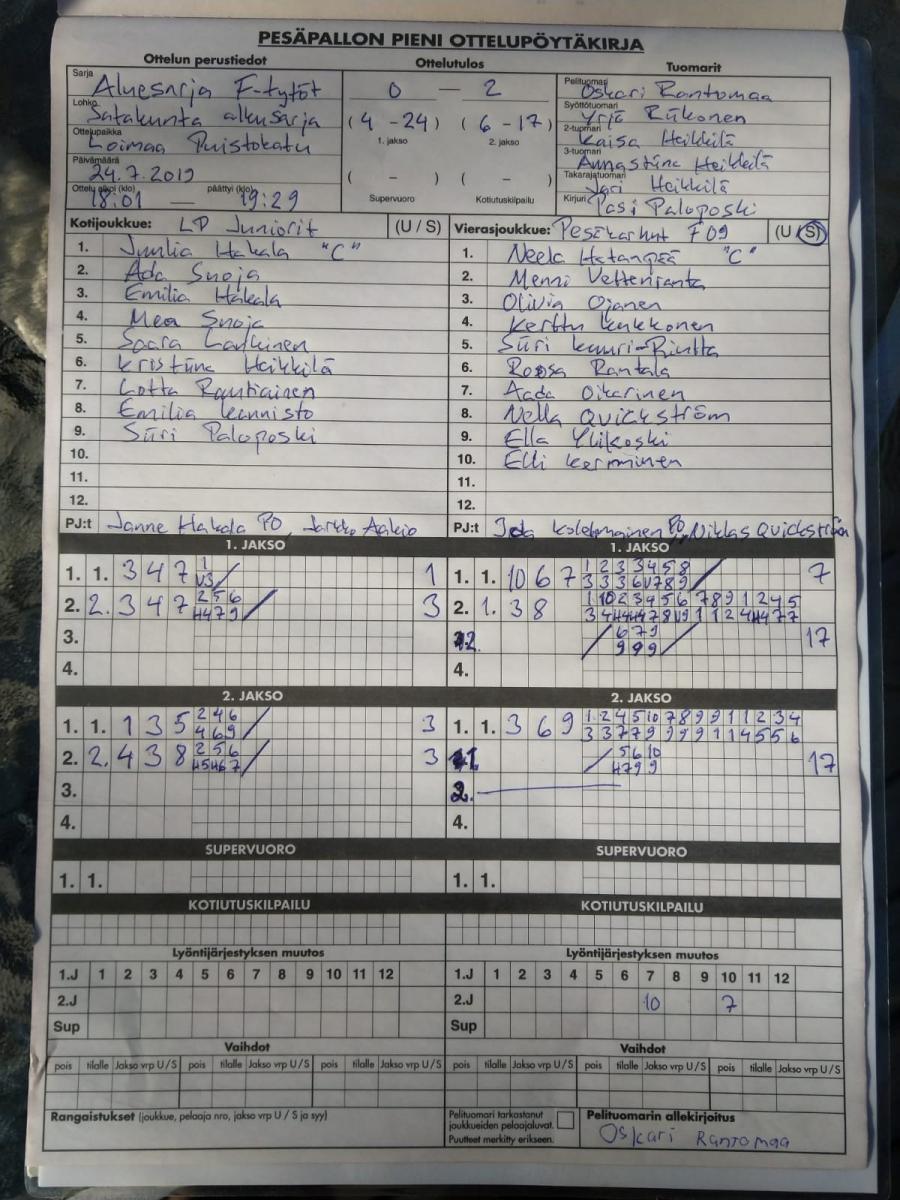 PESÄPALLON PIENI OTTELUPÖYTÄKIRJA
Ottelun perustiedot
Ottelutulos
Tuomarit
Sarja
Aluesarja F-tytöt
Lohko
Satakunta alkusarja
Ottelupaikka
Loimaa Puistokatu
Päivämäärä
24.7.2019
Ottelu alkoi (klo) 18:01 — päättyi (klo) 19:29
0 — 2
(4 - 24) (6 - 17)
1. jakso 2. jakso
( - ) ( - )
Supervuoro Kotiutuskilpailu
Pelituomari Oskari Rantomaa
Syöttötuomari Yrjö Riikonen
2-tuomari Kaisa Heikkilä
3-tuomari Annastiina Heikkilä
Takarajatuomari Jari Heikkilä
Kirjuri Pasi Paloposki
Kotijoukkue: LP Juniorit (U / S)
1. Juulia Hakala "C"
2. Ada Suoja
3. Emilia Hakala
4. Mea Suoja
5. Saara
6. Kristiina Heikkilä
7. Lotta Rautiainen
8. Emilia Kannisto
9. Siiri Paloposki
10.
11.
12.
PJ:t Janne Hakala PO, Jarkko
Vierasjoukkue: Pesäkarhut F09 (U / S)
1. Neela "C"
2. Menni Vettenranta
3. Olivia Ojanen
4. Kerttu Kukkonen
5. Siiri Kauri-Rintta
6. Roosa Rantala
7. Aada Oikarinen
8. Nella Quickström
9. Ella Ylikoski
10. Elli Kerminen
11.
12.
PJ:t Kolehmainen PO, Niklas Quickström
1. JAKSO
1. 1. 3 4 7 1 / 1
V3
2. 2. 3 4 7 2 5 6 / 3
H4 7 9
3.
4.
1. JAKSO
1. 1. 10 6 7 1 2 3 3 4 5 8 / 7
3 3 3 6 V7 8 9
2. 1. 3 8 1 10 2 3 4 5 6 7 8 9 1 2 4 5
/ 6 7 9 / 17
9 9 9
4.
2. JAKSO
1. 1. 1 3 5 2 4 6 / 3
4 6 9
2. 2. 4 3 8 2 5 6 / 3
H4 5 H6 7
3.
4.
2. JAKSO
1. 1. 3 6 9 1 2 4 5 10 7 8 9 9 1 1 2 3 4
3 3 7 7 9 9 9 9 1 1 4 5 5 6
/ 5 6 10 17
H7 9 9
2.
4.
SUPERVUORO
1. 1.
SUPERVUORO
1. 1.
KOTIUTUSKILPAILU
KOTIUTUSKILPAILU
Lyöntijärjestyksen muutos
1.J 1 2 3 4 5 6 7 8 9 10 11 12
2.J
Sup
Lyöntijärjestyksen muutos
1.J 1 2 3 4 5 6 7 8 9 10 11 12
2.J 10 7
Sup
Vaihdot
pois tilalle Jakso vrp U / S pois tilalle Jakso vrp U / S pois tilalle Jakso vrp U / S
Vaihdot
pois tilalle Jakso vrp U / S pois tilalle Jakso vrp U / S pois tilalle Jakso vrp U / S
Rangaistukset (joukkue, pelaaja nro, jakso vrp U / S ja syy)
Pelituomari tarkastanut
joukkueiden pelaajaluvat.
Puutteet merkitty erikseen.
Pelituomarin allekirjoitus
Oskari Rantomaa